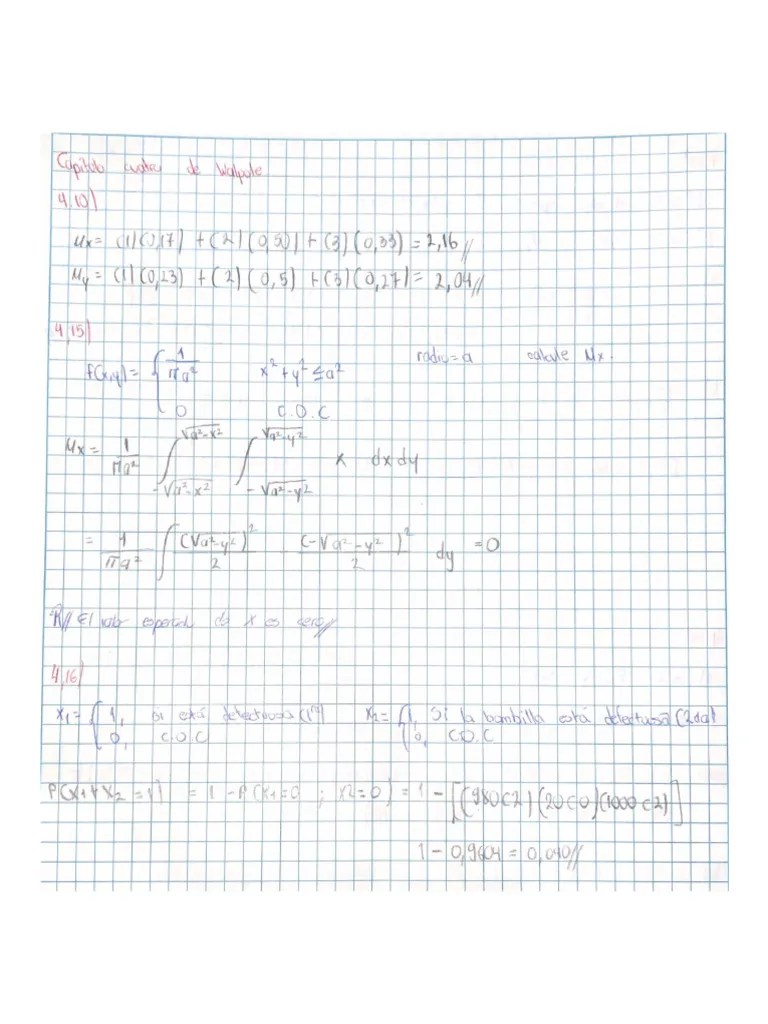 Capítulo cuatro de Walpole
4,10)
Mx= (1)(0,17) +(2)(0,50)+(3)(0,33) = 2,16//
My = (1)(0,23) +(2)(0,5) +(3)(0,27)= 2,04//
4,15)
f(x,y)= { 1/πa² x²+y² ≤a² radio=a calcule Mx.
0 C.O.C
Mx= 1/πa² ∫ -√a²-x² √a²-x² ∫ -√a²-y² √a²-y² x dx dy
= 1/πa² ∫ (√a²-y²)²/2 - (-√a²-y²)²/2 dy =0
R// El valor esperado de x es cero//
4,16)
x1= { 1, si está defectuosa (1ra) x2= { 1, Si la bombilla está defectuosa (2da)
0, C.O.C 0, C.O.C
P(x1+x2 =1) = 1 -P(x1=0 ; x2=0) = 1 - [(980C2)(20C0)(1000C2)]
1 - 0,9604 = 0,040//